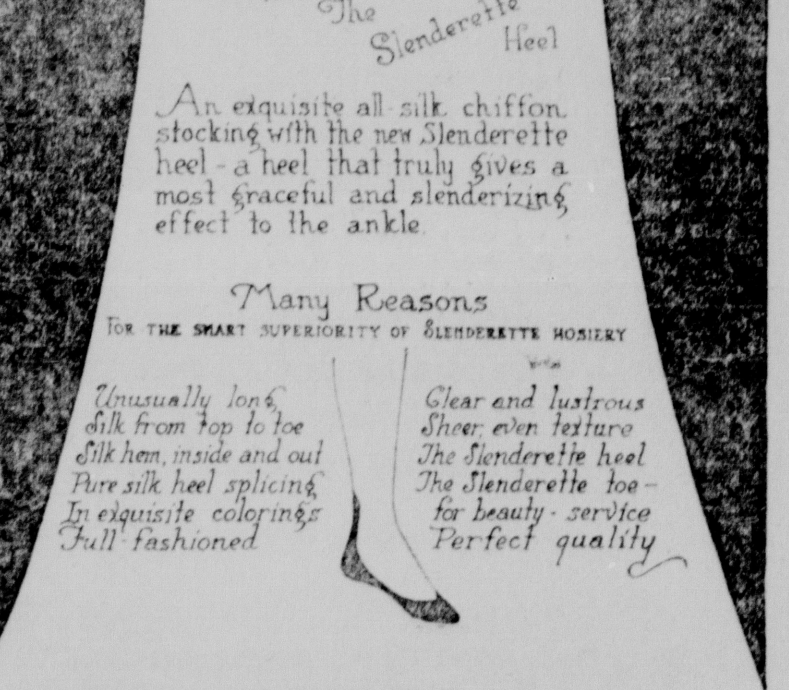 The
Slenderette
Heel
An exquisite all-silk chiffon
stocking with the new Slenderette
heel - a heel that truly gives a
most graceful and slenderizing
effect to the ankle.
Many Reasons
FOR THE SMART SUPERIORITY OF SLENDERETTE HOSIERY
Unusually long
Silk from top to toe
Silk hem, inside and out
Pure silk heel splicing
In exquisite colorings
Full-fashioned
Clear and lustrous
Sheer, even texture
The Slenderette heel
The Slenderette toe -
for beauty - service
Perfect quality